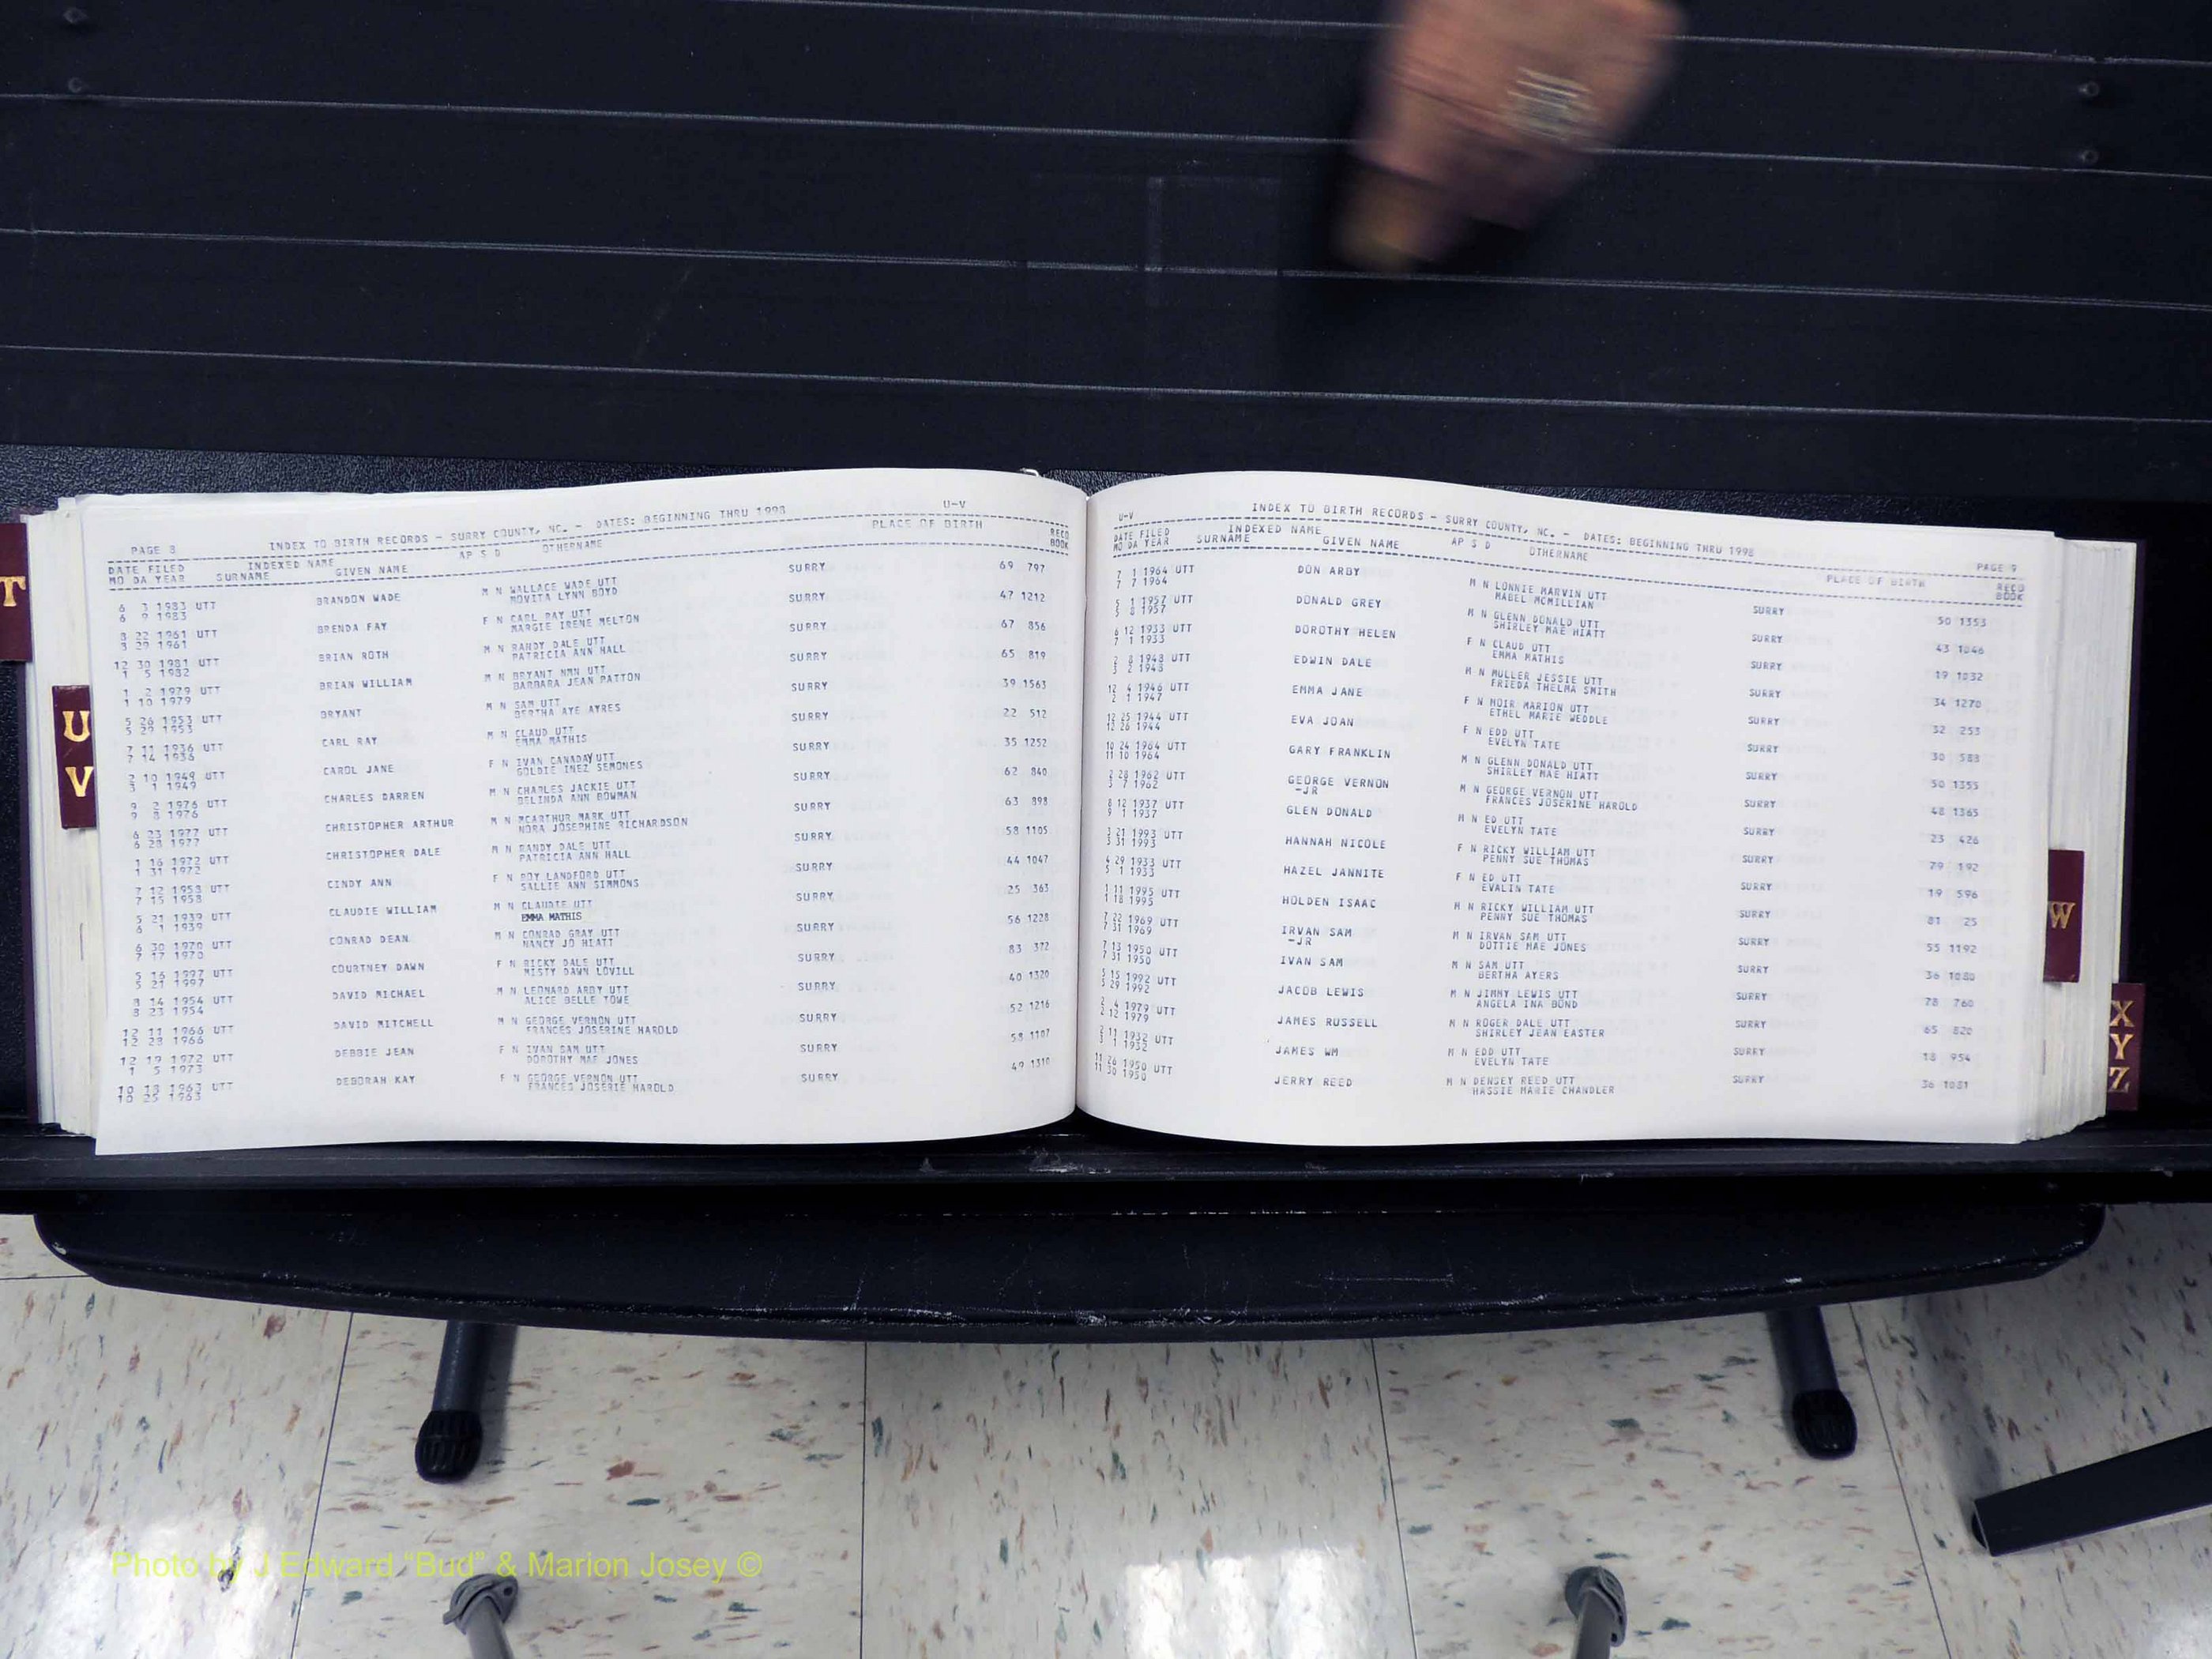 T
U
V
PAGE 8 INDEX TO BIRTH RECORDS - SURRY COUNTY, NC. - DATES: BEGINNING THRU 1998 U-V
DATE FILED INDEXED NAME AP S D OTHERNAME PLACE OF BIRTH RECD
MO DA YEAR SURNAME GIVEN NAME BOOK
6 3 1983 UTT BRANDON WADE M N WALLACE WADE UTT SURRY 69 797
6 9 1983 MOVITA LYNN BOYD
8 22 1961 UTT BRENDA FAY F N CARL RAY UTT SURRY 47 1212
8 29 1961 MARGIE IRENE MELTON
12 30 1981 UTT BRIAN ROTH M N RANDY DALE UTT SURRY 67 856
1 5 1982 PATRICIA ANN HALL
1 2 1979 UTT BRIAN WILLIAM M N BRYANT NMN UTT SURRY 65 819
1 10 1979 BARBARA JEAN PATTON
5 26 1953 UTT BRYANT M N SAM UTT SURRY 39 1563
5 29 1953 BERTHA AYE AYRES
7 11 1936 UTT CARL RAY M N CLAUD UTT SURRY 22 512
7 14 1936 EMMA MATHIS
2 10 1949 UTT CAROL JANE F N IVAN CANADAY UTT SURRY 35 1252
3 1 1949 GOLDIE INEZ SEMONES
9 2 1976 UTT CHARLES DARREN M N CHARLES JACKIE UTT SURRY 62 840
9 8 1976 BELINDA ANN BOWMAN
6 23 1977 UTT CHRISTOPHER ARTHUR M N MCARTHUR MARK UTT SURRY 63 898
6 28 1977 NORA JOSEPHINE RICHARDSON
1 16 1972 UTT CHRISTOPHER DALE M N RANDY DALE UTT SURRY 58 1105
1 31 1972 PATRICIA ANN HALL
7 12 1958 UTT CINDY ANN F N ROY LANDFORD UTT SURRY 44 1047
7 15 1958 SALLIE ANN SIMMONS
5 21 1939 UTT CLAUDIE WILLIAM M N CLAUDIE UTT SURRY 25 363
6 1 1939 EMMA MATHIS
6 30 1970 UTT CONRAD DEAN M N CONRAD GRAY UTT SURRY 56 1228
7 17 1970 NANCY JO HIATT
5 16 1997 UTT COURTNEY DAWN F N RICKY DALE UTT SURRY 83 372
5 21 1997 MISTY DAWN LOVILL
8 14 1954 UTT DAVID MICHAEL M N LEONARD ARBY UTT SURRY 40 1320
8 23 1954 ALICE BELLE TOWE
12 11 1966 UTT DAVID MITCHELL M N GEORGE VERNON UTT SURRY 52 1216
12 28 1966 FRANCES JOSERINE HAROLD
12 19 1972 UTT DEBBIE JEAN F N IVAN SAM UTT SURRY 58 1107
1 5 1973 DOROTHY MAE JONES
10 18 1963 UTT DEBORAH KAY F N GEORGE VERNON UTT SURRY 49 1310
10 25 1963 FRANCES JOSERIE HAROLD
U-V INDEX TO BIRTH RECORDS - SURRY COUNTY, NC. - DATES: BEGINNING THRU 1998 PAGE 9
DATE FILED INDEXED NAME AP S D OTHERNAME PLACE OF BIRTH RECD
MO DA YEAR SURNAME GIVEN NAME BOOK
7 1 1964 UTT DON ARBY M N LONNIE MARVIN UTT SURRY 50 1353
7 7 1964 MABEL MCMILLIAN
5 1 1957 UTT DONALD GREY M N GLENN DONALD UTT SURRY 43 1046
5 8 1957 SHIRLEY MAE HIATT
6 12 1933 UTT DOROTHY HELEN F N CLAUD UTT SURRY 19 1032
7 1 1933 EMMA MATHIS
2 8 1948 UTT EDWIN DALE M N MULLER JESSIE UTT SURRY 34 1270
3 2 1948 FRIEDA THELMA SMITH
12 4 1946 UTT EMMA JANE F N MOIR MARION UTT SURRY 32 253
2 1 1947 ETHEL MARIE WEDDLE
12 25 1944 UTT EVA JOAN F N EDD UTT SURRY 30 583
12 26 1944 EVELYN TATE
10 24 1964 UTT GARY FRANKLIN M N GLENN DONALD UTT SURRY 50 1355
11 10 1964 SHIRLEY MAE HIATT
2 28 1962 UTT GEORGE VERNON M N GEORGE VERNON UTT SURRY 48 1365
3 7 1962 -JR FRANCES JOSERINE HAROLD
8 12 1937 UTT GLEN DONALD M N ED UTT SURRY 23 426
9 1 1937 EVELYN TATE
3 21 1993 UTT HANNAH NICOLE F N RICKY WILLIAM UTT SURRY 79 192
3 31 1993 PENNY SUE THOMAS
4 29 1933 UTT HAZEL JANNITE F N ED UTT SURRY 19 596
5 1 1933 EVALIN TATE
1 11 1995 UTT HOLDEN ISAAC M N RICKY WILLIAM UTT SURRY 81 25
1 18 1995 PENNY SUE THOMAS
7 22 1969 UTT IRVAN SAM M N IRVAN SAM UTT SURRY 55 1192
7 31 1969 -JR DOTTIE MAE JONES
7 13 1950 UTT IVAN SAM M N SAM UTT SURRY 36 1080
7 31 1950 BERTHA AYERS
5 15 1992 UTT JACOB LEWIS M N JIMMY LEWIS UTT SURRY 78 760
5 29 1992 ANGELA INA BOND
2 4 1979 UTT JAMES RUSSELL M N ROGER DALE UTT SURRY 65 820
2 12 1979 SHIRLEY JEAN EASTER
2 11 1932 UTT JAMES WM M N EDD UTT SURRY 18 954
3 1 1932 EVELYN TATE
11 26 1950 UTT JERRY REED M N DENSEY REED UTT SURRY 36 1081
11 30 1950 HASSIE MARIE CHANDLER
W
X
Y
Z
Photo by J Edward “Bud” & Marion Josey ©